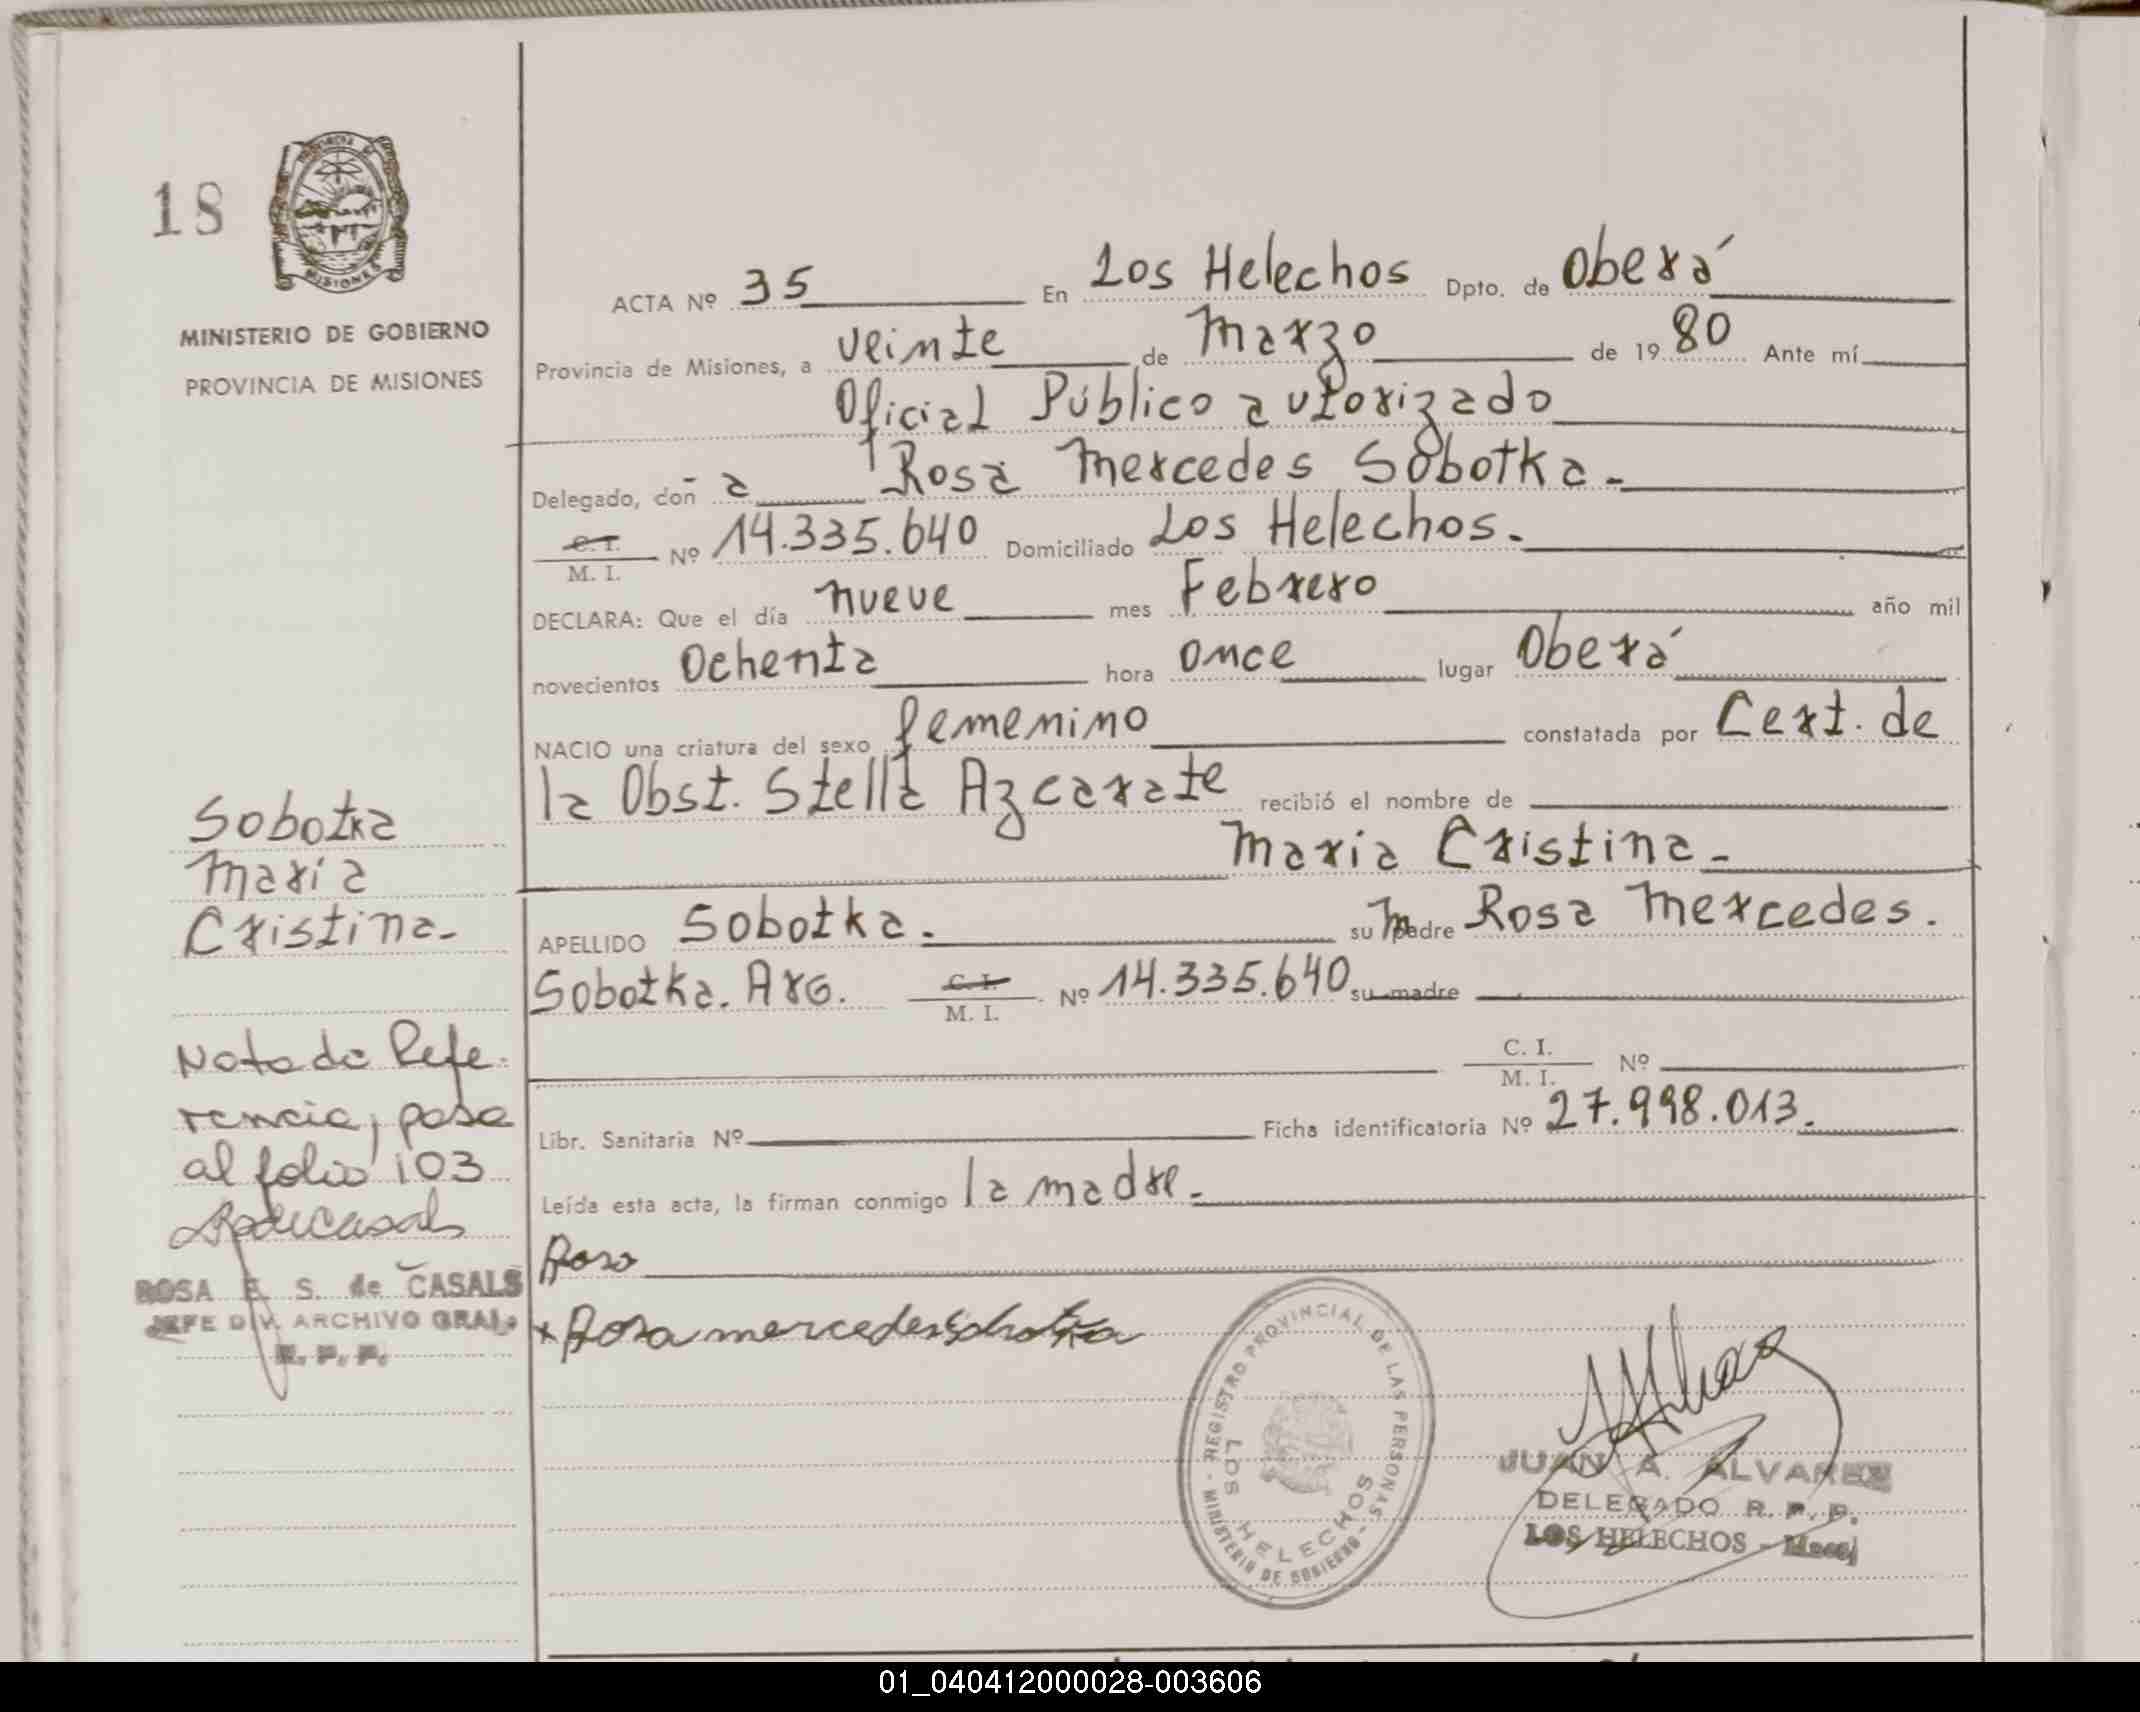 18
MINISTERIO DE GOBIERNO
PROVINCIA DE MISIONES
ACTA Nº 35 En Los Helechos Dpto. de Oberá
Provincia de Misiones, a veinte de Marzo de 1980 Ante mí
Oficial Público autorizado
Delegado, don a Rosa Mercedes Sobotka.
C. I.
M. I. Nº 14.335.640 Domiciliado Los Helechos.
DECLARA: Que el día nueve mes Febrero año mil
novecientos Ochenta hora once lugar Oberá
NACIO una criatura del sexo femenino constatada por Cert. de
la Obst. Stella Azcarate recibió el nombre de
Maria Cristina.
APELLIDO Sobotka. su Madre Rosa Mercedes.
Sobotka. Arg. C. I. M. I. Nº 14.335.640 su madre
C. I. M. I. Nº
Libr. Sanitaria Nº Ficha identificatoria Nº 27.998.013.
Leída esta acta, la firman conmigo la madre.
Rosa
x Rosa mercedes Sobotka
Sobotka
María
Cristina.
Nota de Refe-
rencia, pasa
al folio 103
ROSA E. S. de CASALS
JEFE DIV. ARCHIVO GRAL.
R. P. P.
REGISTRO PROVINCIAL DE LAS PERSONAS - MINISTERIO DE GOBIERNO -
LOS HELECHOS
JUAN A. ALVAREZ
DELEGADO R. P. P.
LOS HELECHOS -
01_040412000028-003606